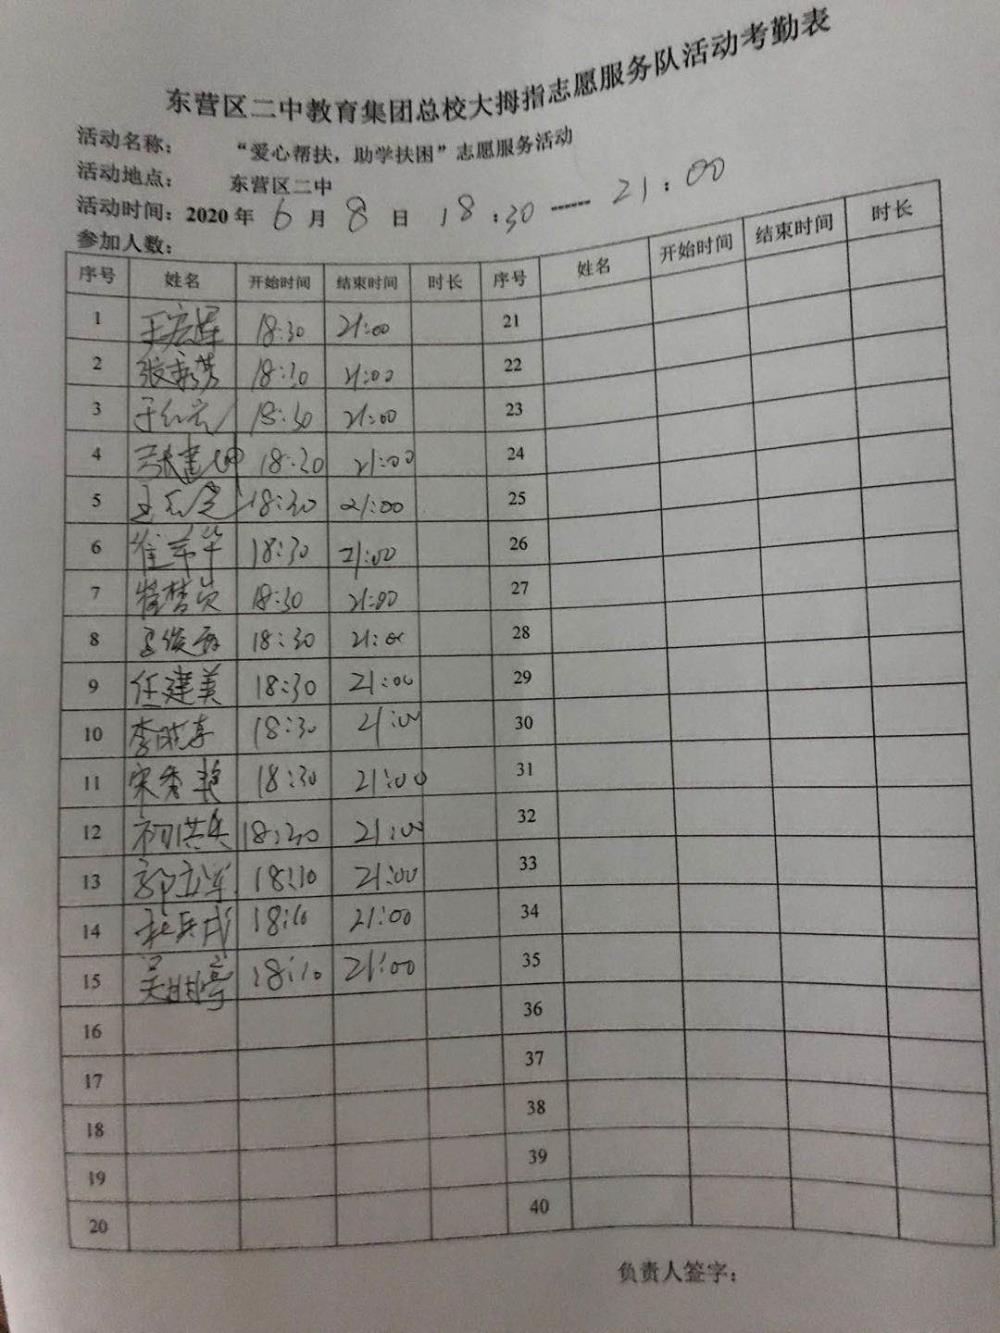 东营区二中教育集团总校大拇指志愿服务队活动考勤表
活动名称： “爱心帮扶，助学扶困”志愿服务活动
活动地点： 东营区二中
活动时间：2020 年 6 月 8 日 18:30 ------ 21:00
参加人数：
序号 姓名 开始时间 结束时间 时长 序号 姓名 开始时间 结束时间 时长
1 18:30 21:00 21
2 18:30 21:00 22
3 18:30 21:00 23
4 18:30 21:00 24
5 18:30 21:00 25
6 18:30 21:00 26
7 18:30 21:00 27
8 18:30 21:00 28
9 任建美 18:30 21:00 29
10 18:30 21:00 30
11 宋秀艳 18:30 21:00 31
12 初洪兵 18:30 21:00 32
13 郭立军 18:10 21:00 33
14 18:10 21:00 34
15 18:10 21:00 35
16 36
17 37
18 38
19 39
20 40
负责人签字：